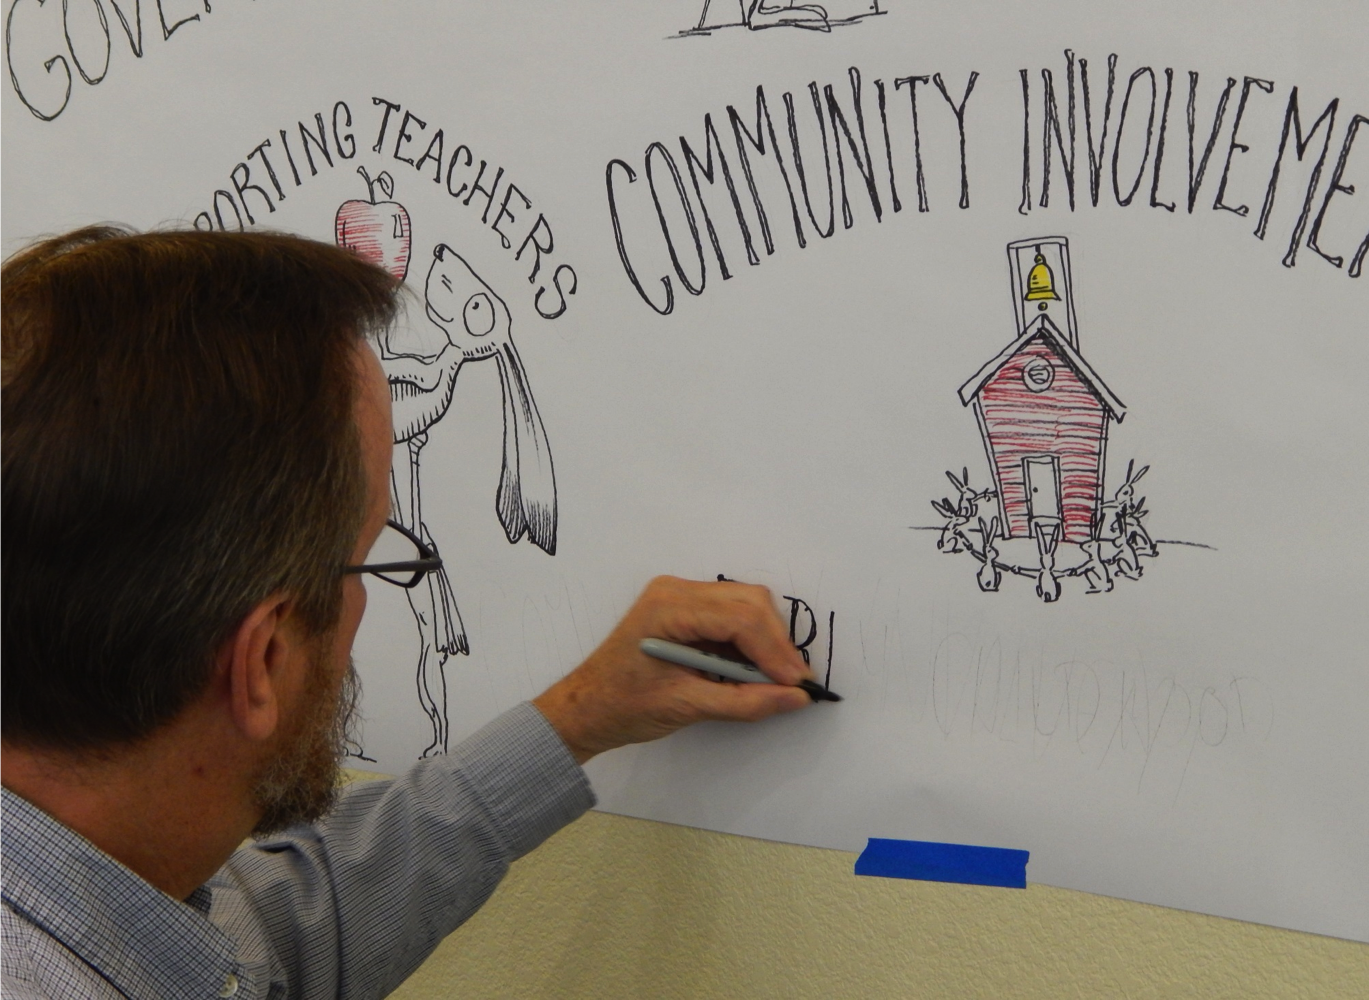 GOVER
PORTING TEACHERS
COMMUNITY INVOLVEME
RI